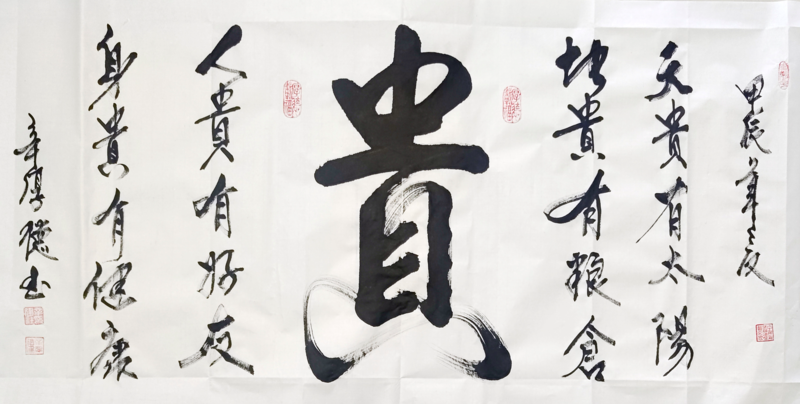 甲辰年之夏
天貴有太陽
地貴有粮倉
貴
人貴有好友
身貴有健康
辛厚德书